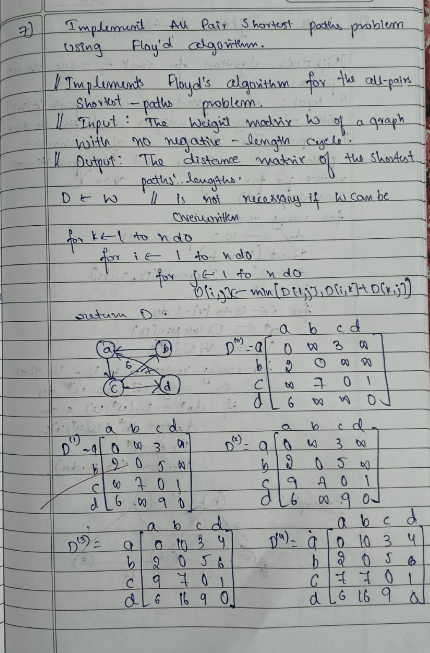 7) Implement All Pair Shortest paths problem
using Floyd algorithm.
// Implements Floyd's algorithm for the all-pairs
shortest - paths problem.
// Input: The weight matrix W of a graph
with no negative - length cycle.
// Output: The distance matrix of the shortest
paths' lengths.
D ← W // is not necessary if W can be
overwritten
for k ← 1 to n do
for i ← 1 to n do
for j ← 1 to n do
D[i,j] ← min{D[i,j], D[i,k] + D[k,j]}
return D.
a b c d
a b D(0) = a 0 ∞ 3 ∞
6 b 2 0 ∞ ∞
c d c ∞ 7 0 1
d 6 ∞ ∞ 0
a b c d a b c d
D(1) = a 0 ∞ 3 ∞ D(2) = a 0 ∞ 3 ∞
b 2 0 5 ∞ b 2 0 5 ∞
c ∞ 7 0 1 c 9 7 0 1
d 6 ∞ 9 0 d 6 ∞ 9 0
a b c d a b c d
D(3) = a 0 10 3 4 D(4) = a 0 10 3 4
b 2 0 5 6 b 2 0 5 6
c 9 7 0 1 c 7 7 0 1
d 6 16 9 0 d 6 16 9 0